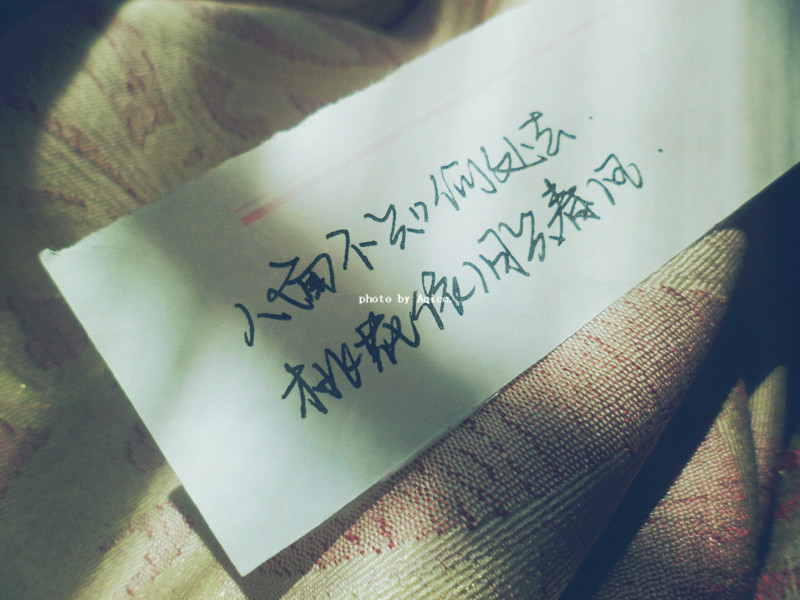 人面不知何处去.
photo by
桃花依旧笑春风.